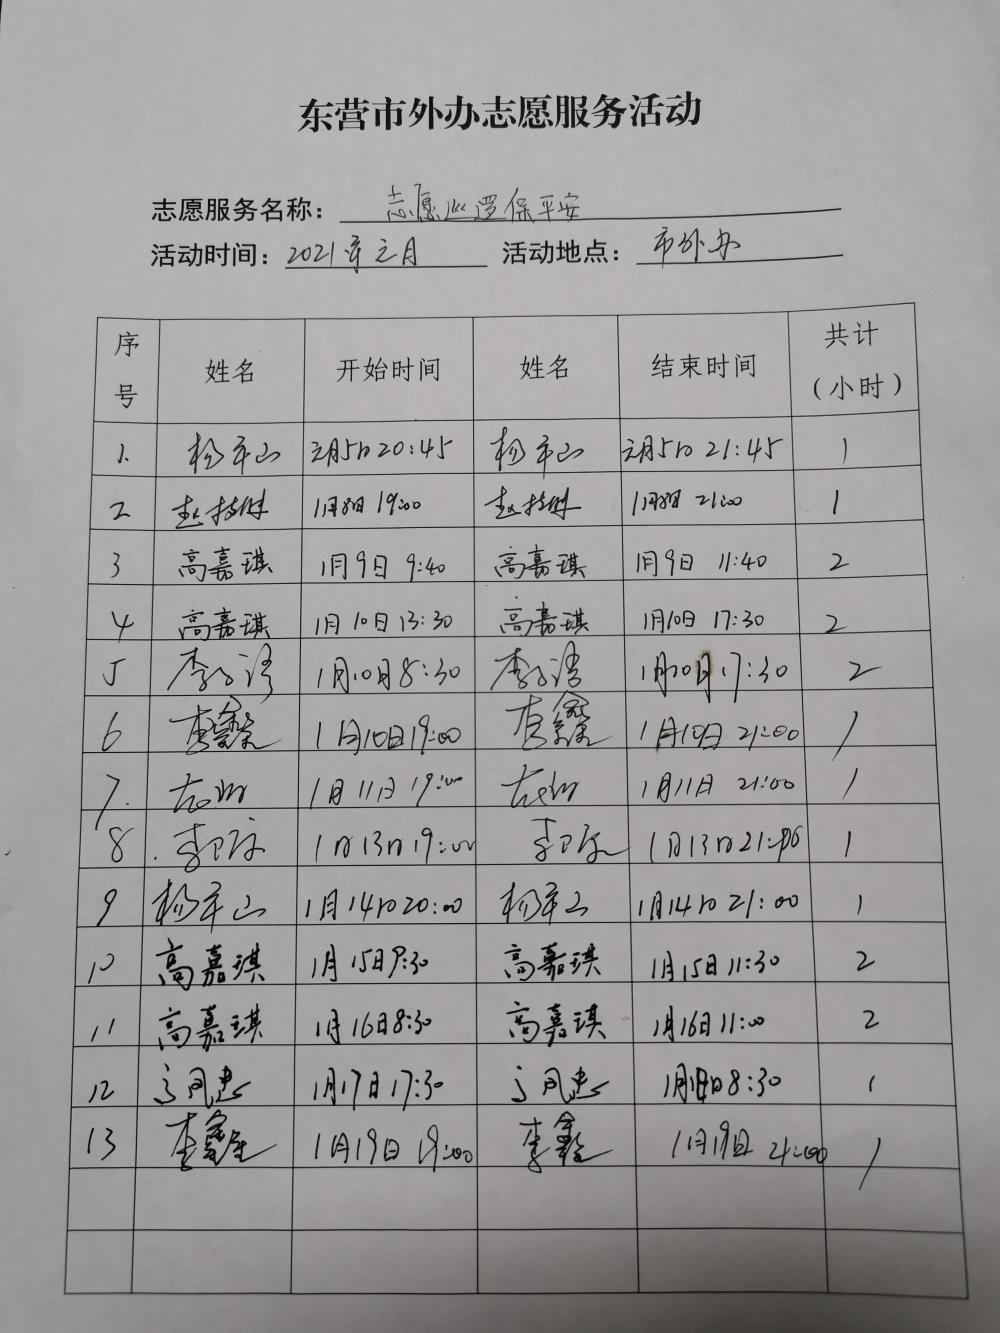 东营市外办志愿服务活动
志愿服务名称：志愿巡逻保平安
活动时间：2021年元月 活动地点：市外办
序号 姓名 开始时间 姓名 结束时间 共计（小时）
1. 杨军山 元月5日 20:45 杨军山 元月5日 21:45 1
2 赵 1月8日 19:00 赵 1月8日 21:00 1
3 高嘉琪 1月9日 9:40 高嘉琪 1月9日 11:40 2
4 高嘉琪 1月10日 13:30 高嘉琪 1月10日 17:30 2
5 李 1月10日 8:30 李 1月10日 17:30 2
6 李鑫 1月10日 19:00 李鑫 1月10日 21:00 1
7. 1月11日 19:00 1月11日 21:00 1
8 李卫 1月13日 19:00 李卫 1月13日 21:00 1
9 杨军山 1月14日 20:00 杨军山 1月14日 21:00 1
10 高嘉琪 1月15日 9:30 高嘉琪 1月15日 11:30 2
11 高嘉琪 1月16日 8:30 高嘉琪 1月16日 11:00 2
12 1月17日 17:30 1月18日 8:30 1
13 李鑫 1月19日 19:00 李鑫 1月19日 21:00 1